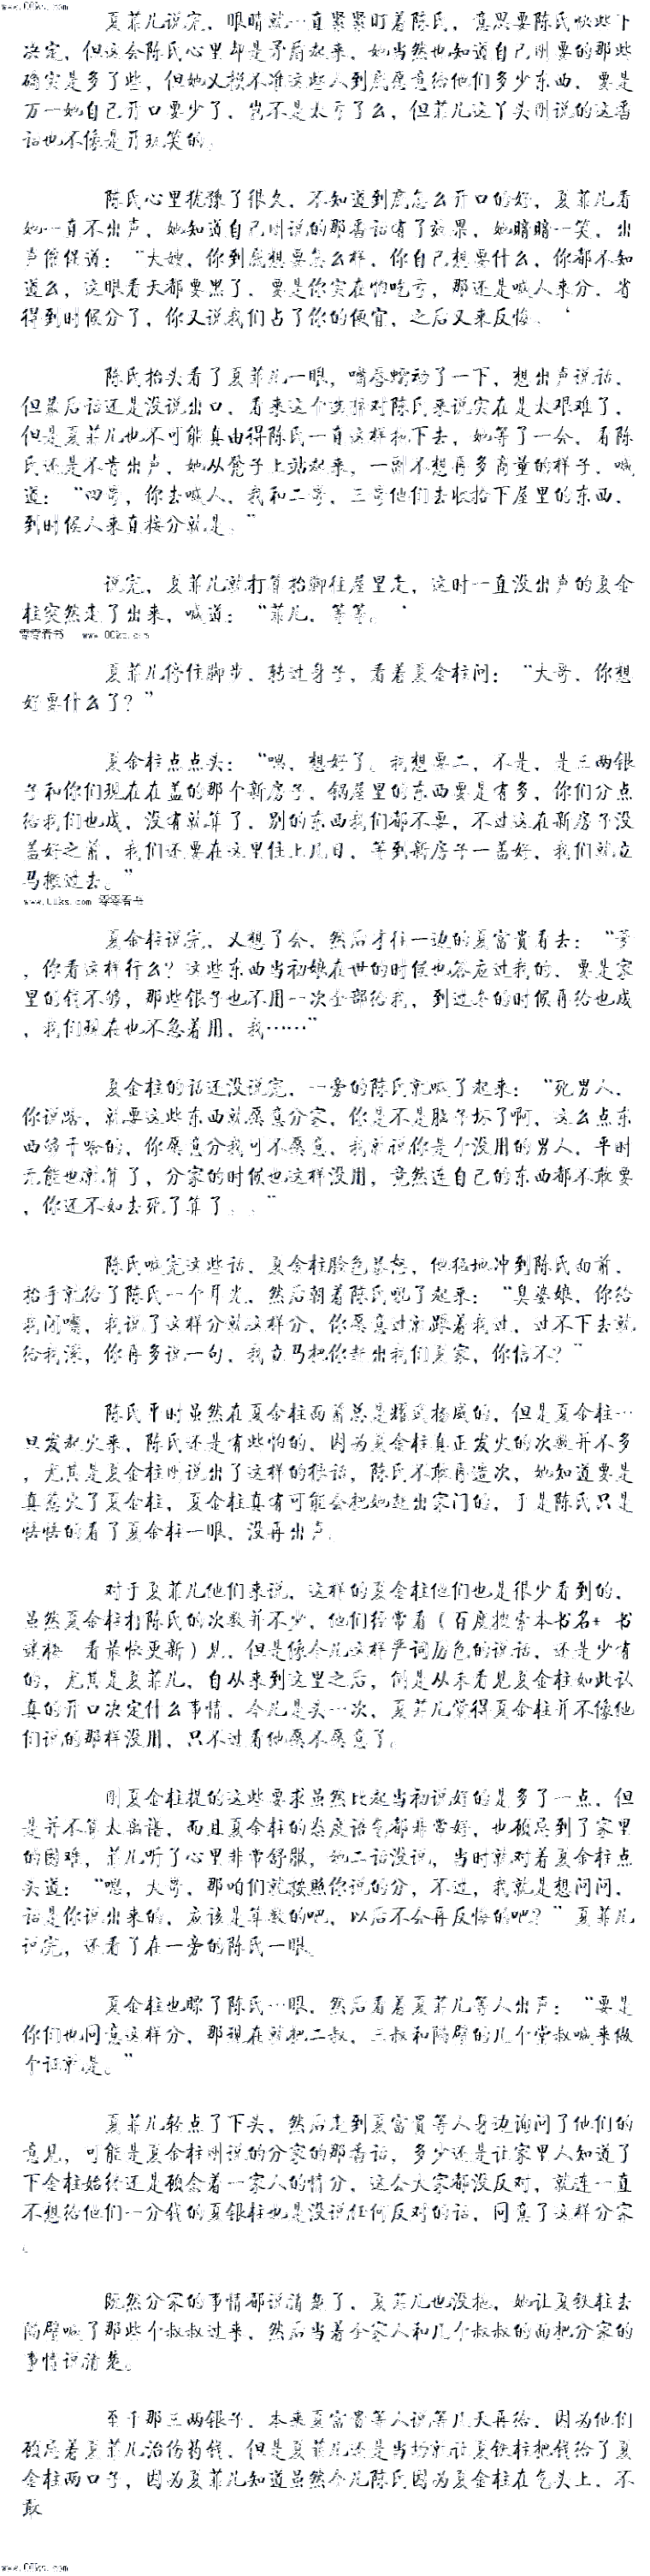 www.00ks.com
夏菲儿说完，眼睛就一直紧紧盯着陈氏，意思要陈氏快些下
决定，但这会陈氏心里却是矛盾起来，她当然也知道自己刚要的那些
确实是多了些，但她又摸不准这些人到底愿意给他们多少东西，要是
万一她自己开口要少了，岂不是太亏了么，但菲儿这丫头刚说的这番
话也不像是开玩笑的。
陈氏心里犹豫了很久，不知道到底怎么开口的好，夏菲儿看
她一直不出声，她知道自己刚说的那番话有了效果，她暗暗一笑，出
声催促道：“大嫂，你到底想要怎么样，你自己想要什么，你都不知
道么，这眼看天都要黑了，要是你实在怕吃亏，那还是喊人来分，省
得到时候分了，你又说我们占了你的便宜，之后又来反悔。‘
陈氏抬头看了夏菲儿一眼，嘴唇蠕动了一下，想出声说话，
但最后话还是没说出口，看来这个选择对陈氏来说实在是太艰难了，
但是夏菲儿也不可能真由得陈氏一直这样拖下去，她等了一会，看陈
氏还是不肯出声，她从凳子上站起来，一副不想再多商量的样子，喊
道：“四哥，你去喊人，我和二哥、三哥他们去收拾下屋里的东西，
到时候人来直接分就是。”
说完，夏菲儿就打算抬脚往屋里走，这时一直没出声的夏金
柱突然走了出来，喊道：“菲儿，等等。‘
零零看书 www.00ks.com
夏菲儿停住脚步，转过身子，看着夏金柱问：“大哥，你想
好要什么了？”
夏金柱点点头：“嗯，想好了。我想要二，不是，是三两银
子和你们现在在盖的那个新房子，锅屋里的东西要是有多，你们分点
给我们也成，没有就算了，别的东西我们都不要，不过这在新房子没
盖好之前，我们还要在这里住上几日，等到新房子一盖好，我们就立
马搬过去。”
www.00ks.com 零零看书
夏金柱说完，又想了会，然后才往一边的夏富贵看去：“爹
，你看这样行么？这些东西当初娘在世的时候也答应过我的，要是家
里的钱不够，那些银子也不用一次全部给我，到过冬的时候再给也成
，我们现在也不急着用，我……”
夏金柱的话还没说完，一旁的陈氏就喊了起来：“死男人，
你说啥，就要这些东西就愿意分家，你是不是脑子坏了啊，这么点东
西够干啥的，你愿意分我可不愿意，我就说你是个没用的男人，平时
无能也就算了，分家的时候也这样没用，竟然连自己的东西都不敢要
，你还不如去死了算了。。”
陈氏喊完这些话，夏金柱脸色暴怒，他猛地冲到陈氏面前，
抬手就给了陈氏一个耳光，然后朝着陈氏吼了起来：“臭婆娘，你给
我闭嘴，我说了这样分就这样分，你愿意过就跟着我过，过不下去就
给我滚，你再多说一句，我立马把你赶出我们夏家，你信不？”
陈氏平时虽然在夏金柱面前总是耀武扬威的，但是夏金柱一
旦发起火来，陈氏还是有些怕的，因为夏金柱真正发火的次数并不多
，尤其是夏金柱刚说出了这样的狠话，陈氏不敢再造次，她知道要是
真惹火了夏金柱，夏金柱真有可能会把她赶出家门的，于是陈氏只是
怯怯的看了夏金柱一眼，没再出声。
对于夏菲儿他们来说，这样的夏金柱他们也是很少看到的，
虽然夏金柱打陈氏的次数并不少，他们经常看（百度搜索本书名+ 书
读梅 看最快更新）见，但是像今儿这样严词厉色的说话，还是少有
的，尤其是夏菲儿，自从来到这里之后，倒是从未看见夏金柱如此认
真的开口决定什么事情，今儿是头一次，夏菲儿觉得夏金柱并不像他
们说的那样没用，只不过看他愿不愿意了。
刚夏金柱提的这些要求虽然比起当初说好的是多了一点，但
是并不算太离谱，而且夏金柱的态度语气都非常好，也顾忌到了家里
的困难，菲儿听了心里非常舒服，她二话没说，当时就对着夏金柱点
头道：“嗯，大哥，那咱们就按照你说的分，不过，我就是想问问，
话是你说出来的，应该是算数的吧，以后不会再反悔的吧？”夏菲儿
说完，还看了在一旁的陈氏一眼。
夏金柱也瞟了陈氏一眼，然后看着夏菲儿等人出声：“要是
你们也同意这样分，那现在就把二叔、三叔和隔壁的几个堂叔喊来做
个证就是。”
夏菲儿轻点了下头，然后走到夏富贵等人身边询问了他们的
意见，可能是夏金柱刚说的分家的那番话，多少还是让家里人知道了
下金柱始终还是顾念着一家人的情分，这会大家都没反对，就连一直
不想给他们一分钱的夏银柱也是没说任何反对的话，同意了这样分家
。
既然分家的事情都说清楚了，夏菲儿也没拖，她让夏铁柱去
隔壁喊了那些个叔叔过来，然后当着全家人和几个叔叔的面把分家的
事情说清楚。
至于那三两银子，本来夏富贵等人说等几天再给，因为他们
顾忌着夏菲儿治伤药钱，但是夏菲儿还是当场就让夏铁柱把钱给了夏
金柱两口子，因为夏菲儿知道虽然今儿陈氏因为夏金柱在气头上，不
敢
www.00ks.com